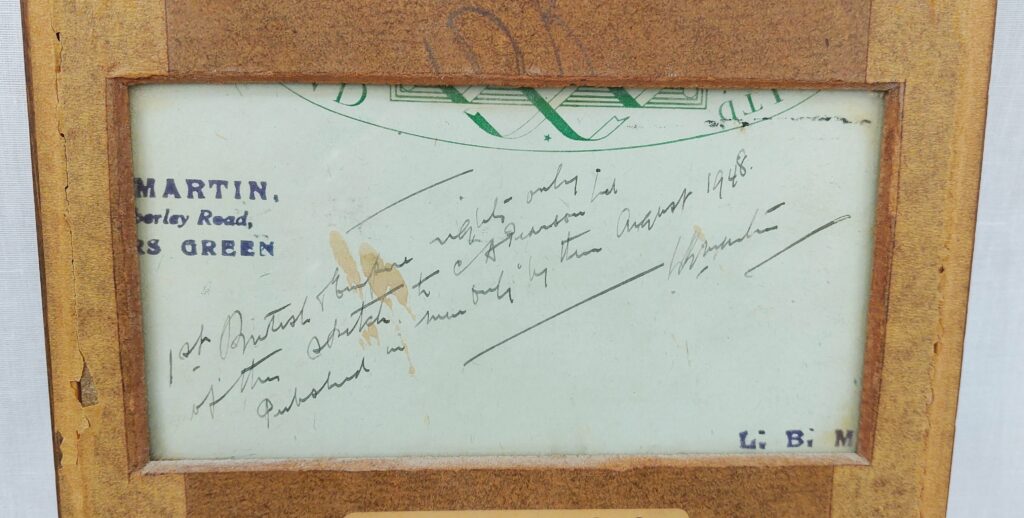 D
LTD.
MARTIN,
berley Road,
RS GREEN
1st British & Empire rights only
of this sketch to C A Pearson Ltd
Published in men only by them August 1948.
L. B. M